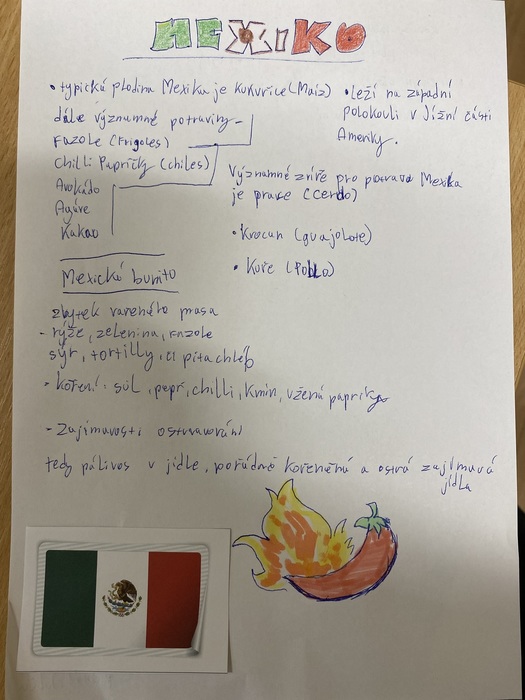 MEXIKO
• typická plodina Mexika je Kukuřice (Maíz)
dále významné potraviny -
Fazole (Frigoles)
Chilli Papričky (chiles)
Avokádo
Agáve
Kakao
• leží na západní
polokouli v Jižní části
Ameriky.
Významné zvíře pro potravu Mexika
je prase (cerdo)
• Krocan (guajolote)
• Kuře (Pollo)
Mexické burito
zbytek vařeného masa
- rýže, zelenina, Fazole
sýr, tortilly, či pita chléb
- koření: sůl, pepř, chilli, kmín, uzená paprika
- Zajímavosti
tedy pálivos v jídle, pořádně kořeněná a ostrá zajímavá
jídla